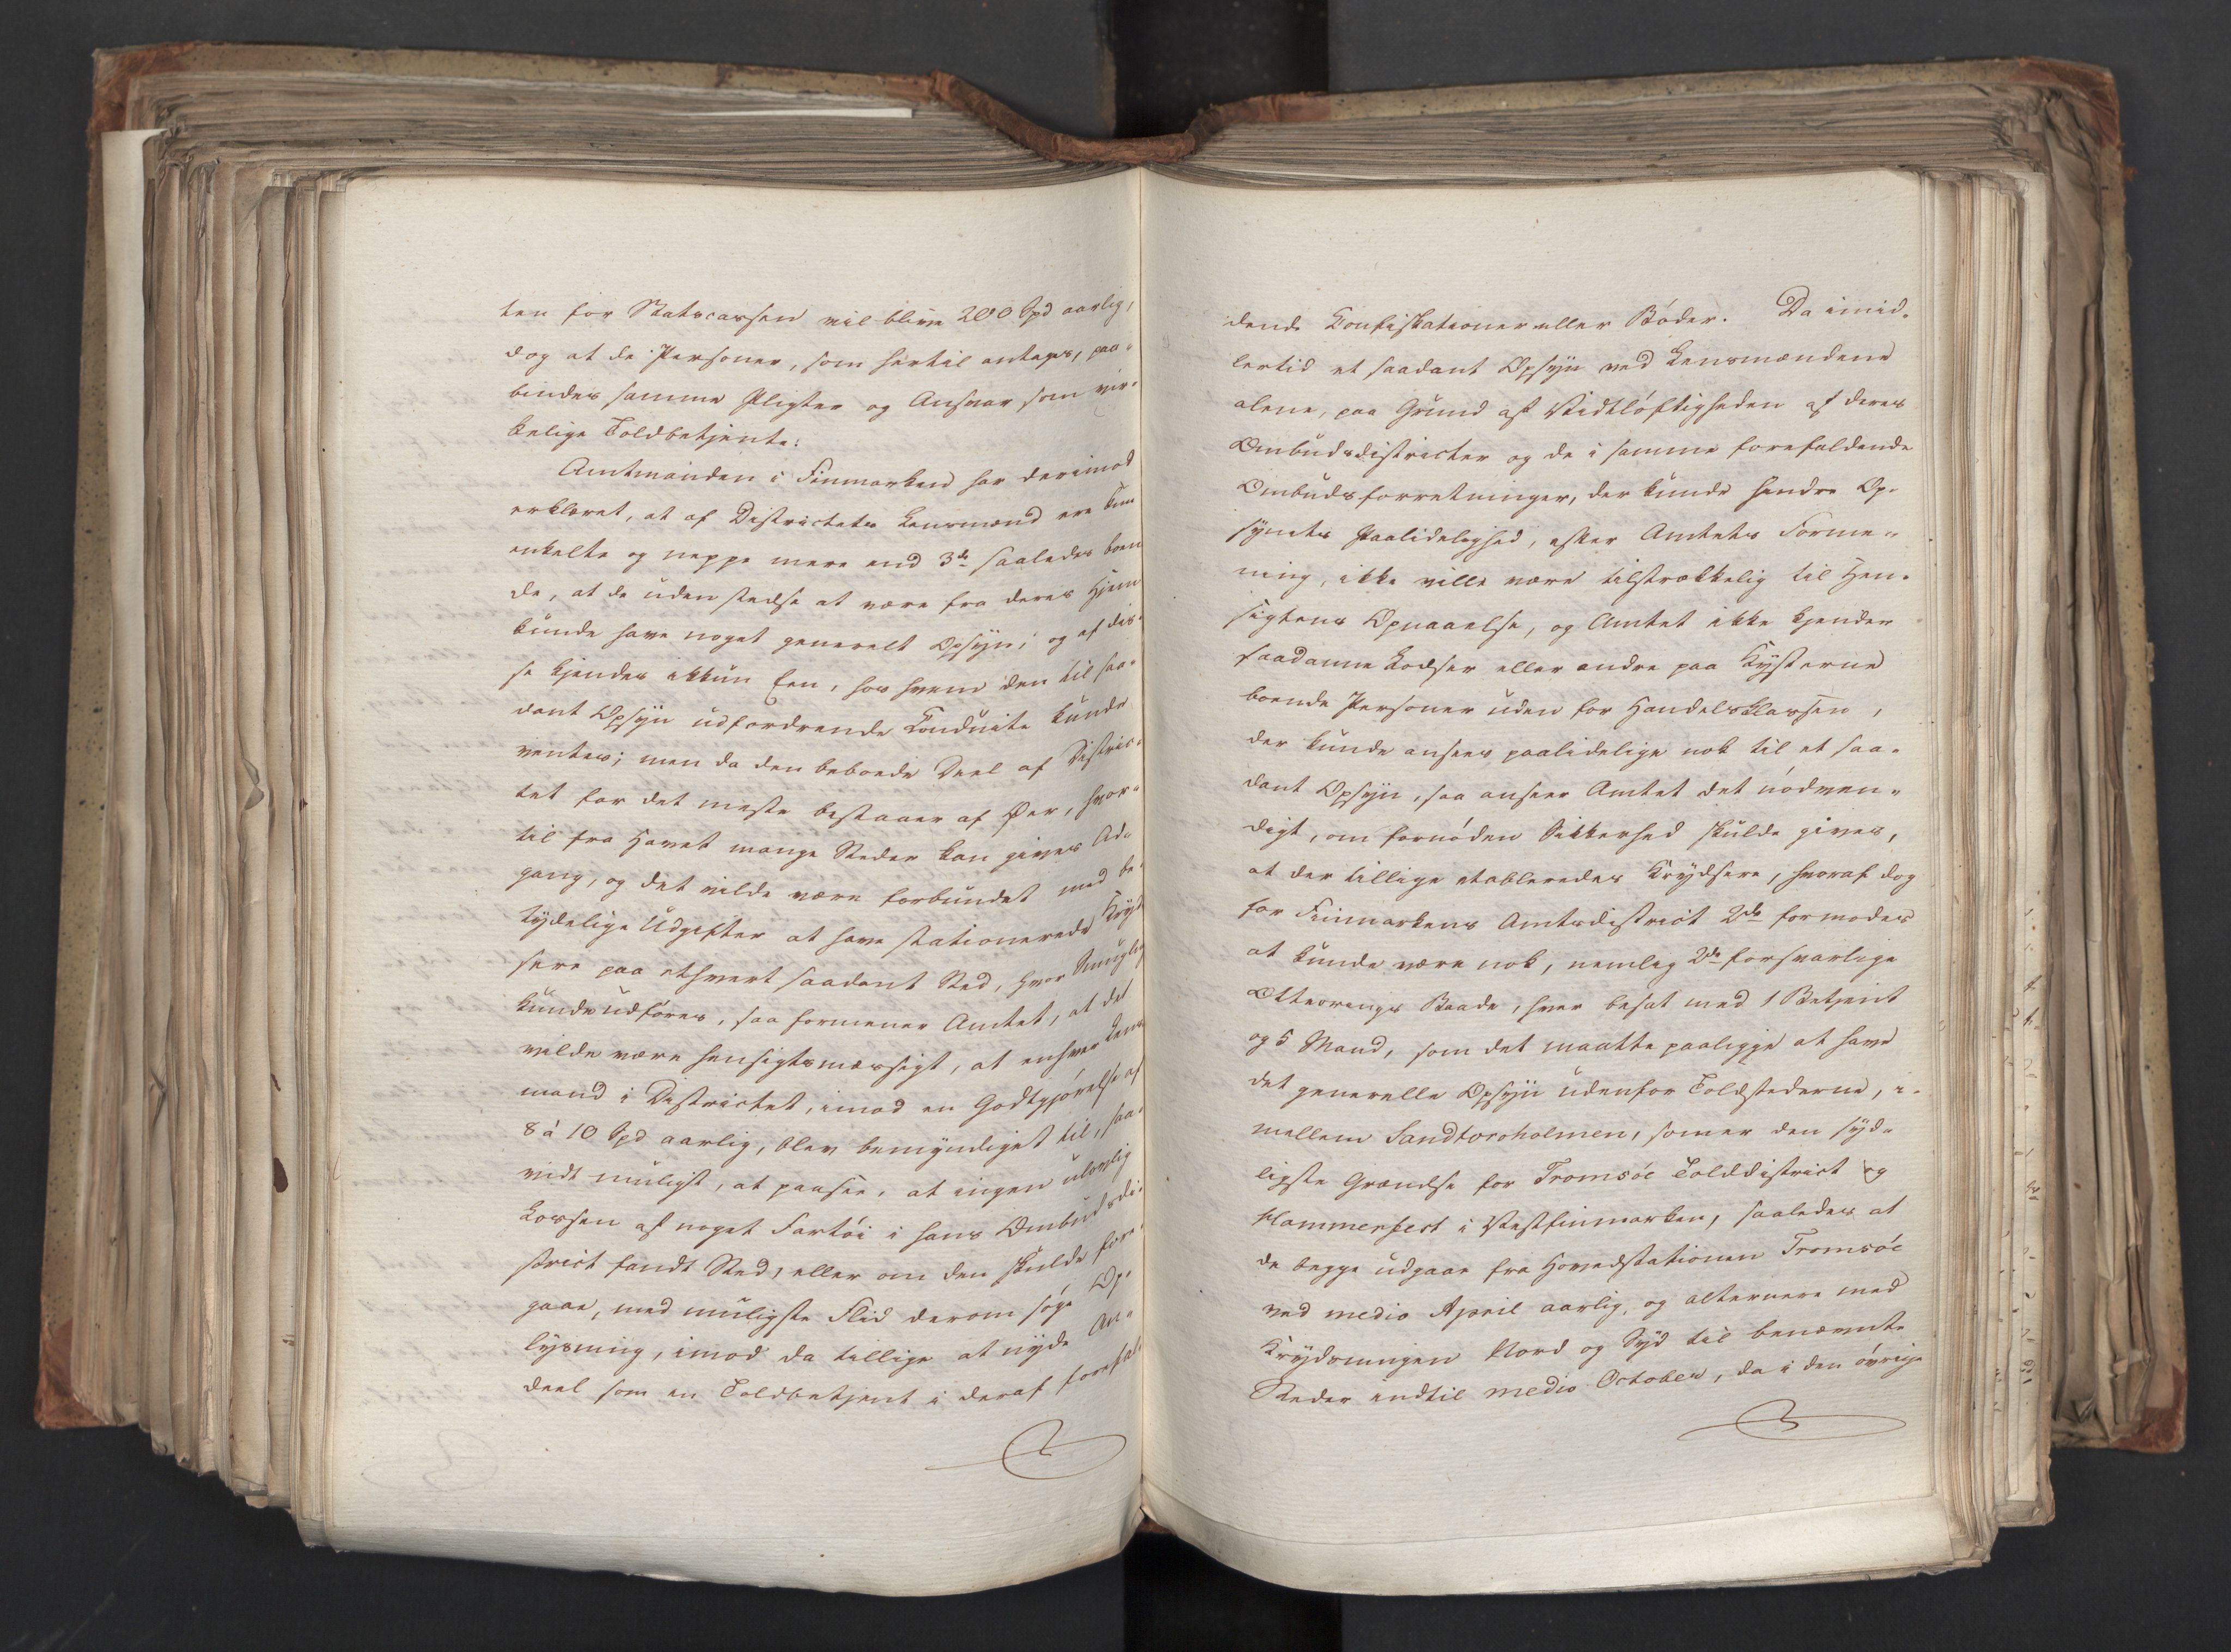 ten for Statscassen vil blive 200 Spd aarlig,
dog at de Personer, som hertil antages, paa-
bindes samme Pligter og Ansvar som vir-
kelige Toldbetjente.
Amtmanden i Finmarken har derimod
erklæret, at af Districtets Lensmænd ere kun
enkelte og neppe mere end 3de saaledes boen
de, at de uden stedse at være fra deres Hjem
kunde have noget generelt Opsyn; og af dis-
se kjendes ikkun Een, hos hvem den til saa-
dant Opsyn udfordrende Conduite kunde
ventes; men da den beboede Deel af Distric-
tet for det meste bestaaer af Øer, hvor-
til fra Havet mange Steder kan gives Ad-
gang, og det vilde være forbundet med be-
tydelige Udgifter at have stationerede Kryd
sere paa ethvert saadant Sted, hvor Smugleri
kunde udføres, saa formener Amtet, at det
vilde være hensigtsmæssigt, at enhver Lens
mand i Districtet, imod en Godtgjørelse af
8 á 10 Spd aarlig, blev bemyndiget til, saa-
vidt muligt, at paasee, at ingen ulovlig
Lossen af noget Fartøi i hans Ombudsdi-
strict fandt Sted, eller om den skulde fore-
gaae, med muligste Flid derom søge Op-
lysning, imod da tillige at nyde An-
deel som en Toldbetjent i deraf forefal-
dende Confiskationer eller Bøder. Da imid-
lertid et saadant Opsyn ved Lensmændene
alene, paa Grund af Vidtløftigheden af deres
Ombudsdistricter og de i samme forefaldende
Ombudsforretninger, der kunde hindre Op-
synets Paalidelighed, efter Amtets Forme-
ning, ikke ville være tilstrækkelig til Hen-
sigtens Opnaaelse, og Amtet ikke kjender
saadanne Lodser eller andre paa Kysterne
boende Personer uden for Handelsklassen,
der kunde ansees paalidelige nok til et saa-
dant Opsyn, saa anseer Amtet det nødven-
digt, om fornøden Sikkerhed skulde gives,
at der tillige etableredes Krydsere, hvoraf dog
for Finmarkens Amtsdistrict 2de formodes
at kunde være nok, nemlig 2de forsvarlige
Otterings Baade, hver besat med 1 Betjent
og 5 Mand, som det maatte paaligge at have
det generelle Opsyn udenfor Toldstederne, i-
mellem Sandtorvholmen, som er den syd-
ligste Grændse for Tromsöe Tolddistrict og
Hammerfest i Vestfinmarken, saaledes at
de begge udgaae fra Hovedstationen Tromsöe
ved medio April aarlig, og alternere med
Krydsningen Nord og Syd til benævnte
Steder indtil medio October, da i den øvrige